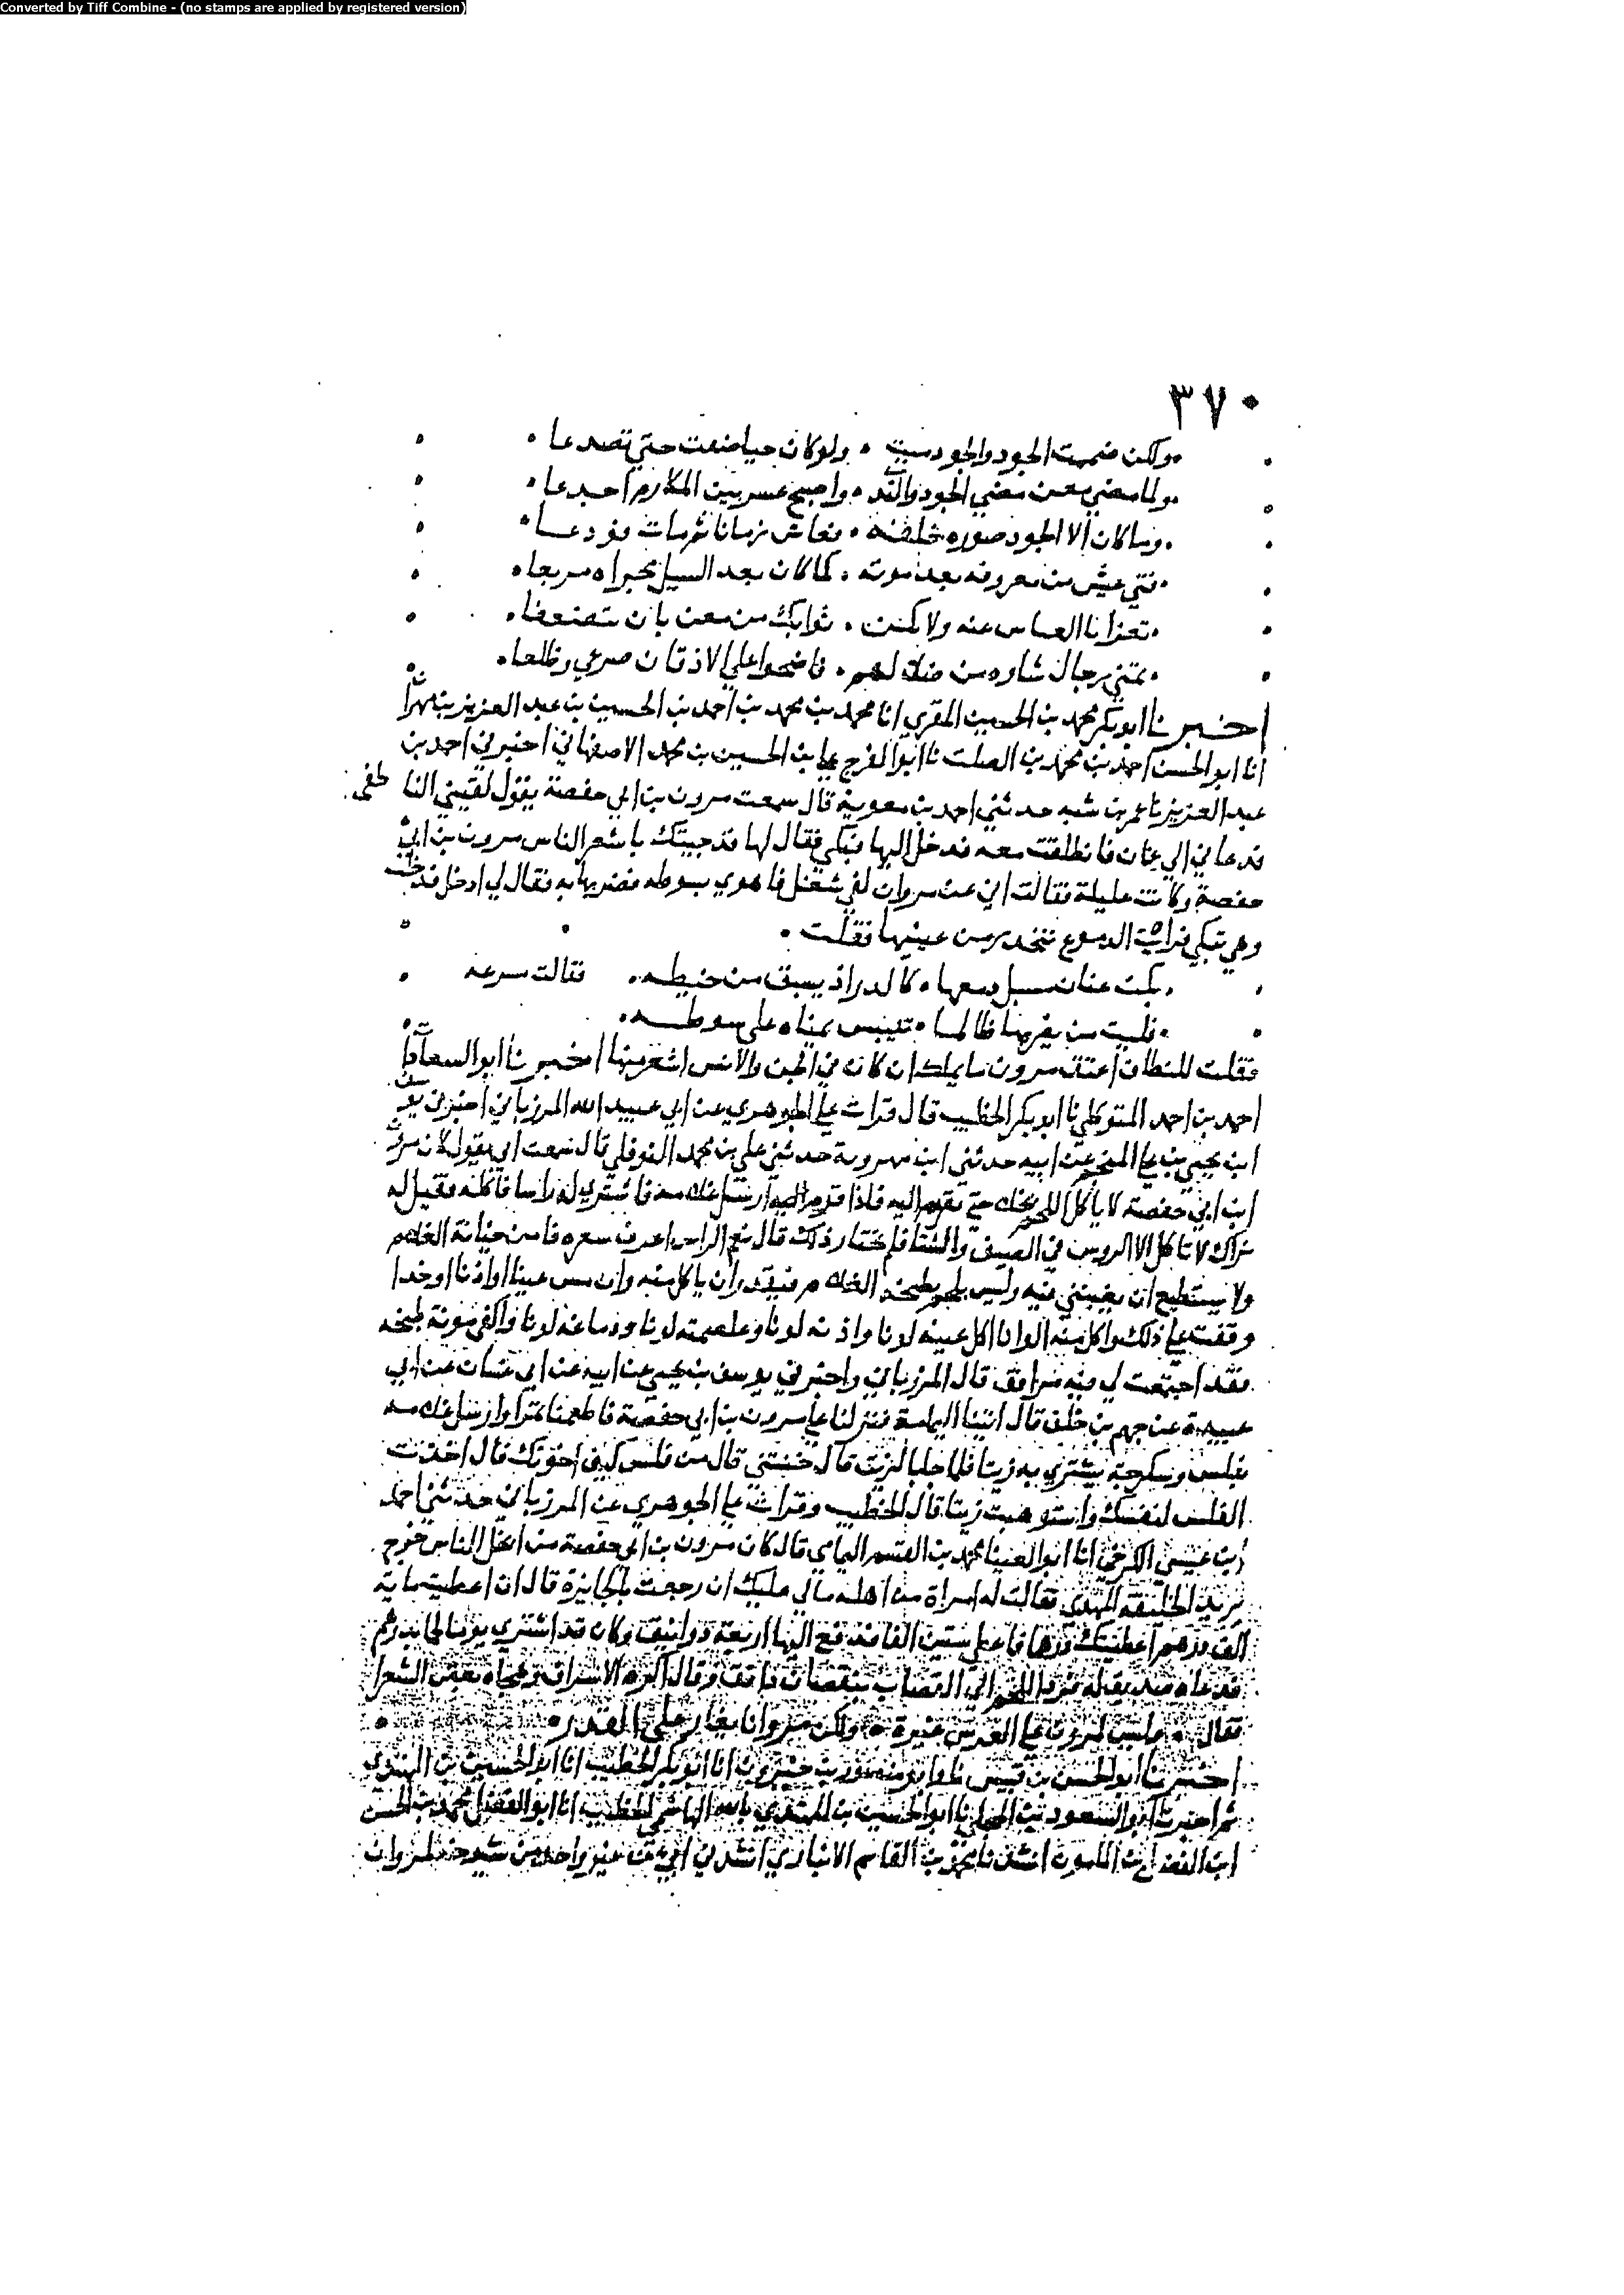 Converted by Tiff Combine - (no stamps are applied by registered version)
٣٧٠
ولكن ضممت الجود والجود ميت ٠ ولو كان حيا ضقت حتى تصدعا
ولما مضى معن مضى الجود والندى ٠ واصبح عرنين المكارم اجدعا
وما كان الا الجود صوره خلقه ٠ فعاش زمانا ثم مات فودعا
فتى عيش من معروفه بعد موته ٠ كما كان بعد السيل مجراه مربعا
تعز ابا العباس عنه ولا يكن ٠ ثوابك من معن بان تتضعضعا
تمنى رجال شاوه من ضلالهم ٠ فاضحوا على الاذقان صرعى وظلعا
اخبرنا ابو بكر محمد بن الحسين المقري انا محمد بن محمد بن احمد بن الحسين بن عبد العزيز بن مهران
انا ابو الحسن احمد بن محمد بن الصلت نا ابو الفرج علي بن الحسين بن محمد الاصفهاني اخبرني احمد بن
عبد العزيز نا عمر بن شبه حدثني احمد بن معوية قال سمعت مرون بن ابي حفصة يقول لقيني الناطفى
فدعاني الى عنان فانطلقت معه فدخل اليها فقال لها قد جيتك باشعر الناس مرون بن ابي
حفصة وكانت عليلة فقالت اني عن مروان لفي شغل فاهوى بسوطه فضربها به فقال لي ادخل فدخلت
وهي تبكي فرايت الدموع تتحدر من عينيها فقلت
بكت عنان مسبل دمعها ٠ كالدر اذ يسبق من خيطه ٠ فقالت مسرعة
فليت من يضربها ظالما ٠ تيبس يمناه على سوطه
فقلت للنطاف اعتق مرون ما يملك ان كان في الجن والانس اشعر منها اخبرنا ابو السعادات
احمد بن احمد المتوكلي نا ابو بكر الخطيب قال قرات على الجوهري عن ابي عبيد الله المرزباني اخبرني يوسف
ابن يحيى بن علي المنجم عن ابيه حدثني ابن مهروية حدثني علي بن محمد النوفلي قال سمعت ابي يقول كان مرون
ابن ابي حفصة لا ياكل اللحم بخلا حتى يقرم اليه فاذا قرم اليه ارسل غلامه فاشترى له راسا فاكله فقيل له
نراك لا تاكل الا الروس في الصيف والشتا فلم تختار ذلك قال نعم الراس اعرف سعره فامن خيانة الغلام
ولا يستطيع ان يغبنني فيه وليس بلحم يطبخه الغلام فيقدر ان ياكل منه وان مس عينا او اذنا او خدا
وقفت على ذلك واكل منه الوانا اكل عينه لونا واذنه لونا وغلصمته لونا ودماغه لونا واكفى مونة طبخه
فقد اجتمعت لي فيه مرافق قال المرزباني واخبرني يوسف بن يحيى عن ابيه عن ابي غسان عن ابي
عبيدة عن جهم بن خلف قال اتينا اليمامة فنزلنا على مرون بن ابي حفصة فاطعمنا تمرا وارسل غلامه
بفلس وسكرجة يشتري به زيتا فلما جا بالزيت قال خنتني قال من فلس كيف اخونك قال اخذت
الفلس لنفسك واستوهبت زيتا قال الخطيب وقرات على الجوهري عن المرزباني حدثني احمد
ابن عيسى الكرخي انا ابو العينا محمد بن القسم اليمامي قال كان مرون بن ابي حفصة من ابخل الناس خرج
يريد الخليفة المهدي فقالت له امراة من اهله مالي عليك ان رجعت بالجايزة قال ان اعطيت ماية
الف درهم اعطيتك درهما فاعطي ستين الفا فدفع اليها اربعة دوانيق وكان قد اشترى يوما لحما بدرهم
فدعاه صديق له فرد اللحم الى القصاب بنقصان دانق وقال اكره الاسراف وهجاه بعض الشعرا
فقال ٠ وليس لمروان على العرس غيرة ٠ ولكن مروانا يغار على القدر
اخبرنا ابو الحسن بن قبيس نا وابو منصور بن خيرون انا ابو بكر الخطيب انا ابو الحسين بن المهتدي
ثم اخبرنا ابو السعود بن المجلي نا ابو الحسين بن المهتدي بالله الهاشمي الخطيب انا ابو الفضل محمد بن الحسن
ابن الفضل بن المامون انشدنا محمد بن القاسم الانباري انشدني ابي عن غير واحد من شيوخه لمروان